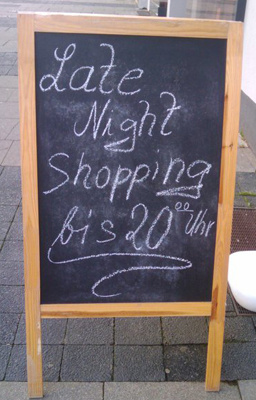 Late
Night
Shopping
bis 20⁰⁰ Uhr